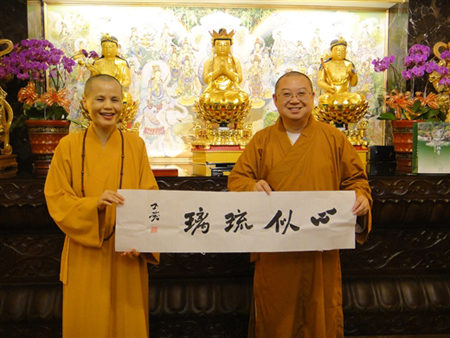 心似琉璃